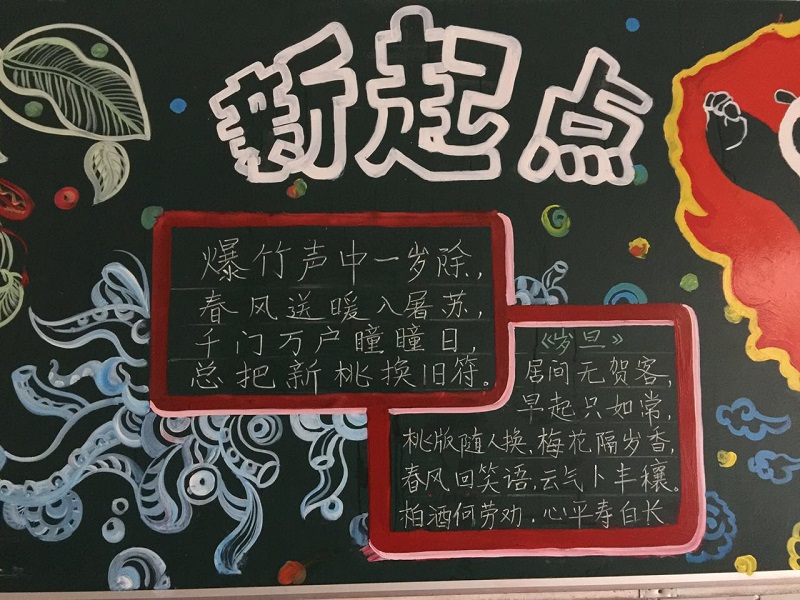 新起点
爆竹声中一岁除,
春风送暖入屠苏,
千门万户瞳瞳日,
总把新桃换旧符。
《岁旦》
居间无贺客,
早起只如常,
桃版随人换,梅花隔岁香,
春风回笑语,云气卜丰穰。
柏酒何劳劝,心平寿自长